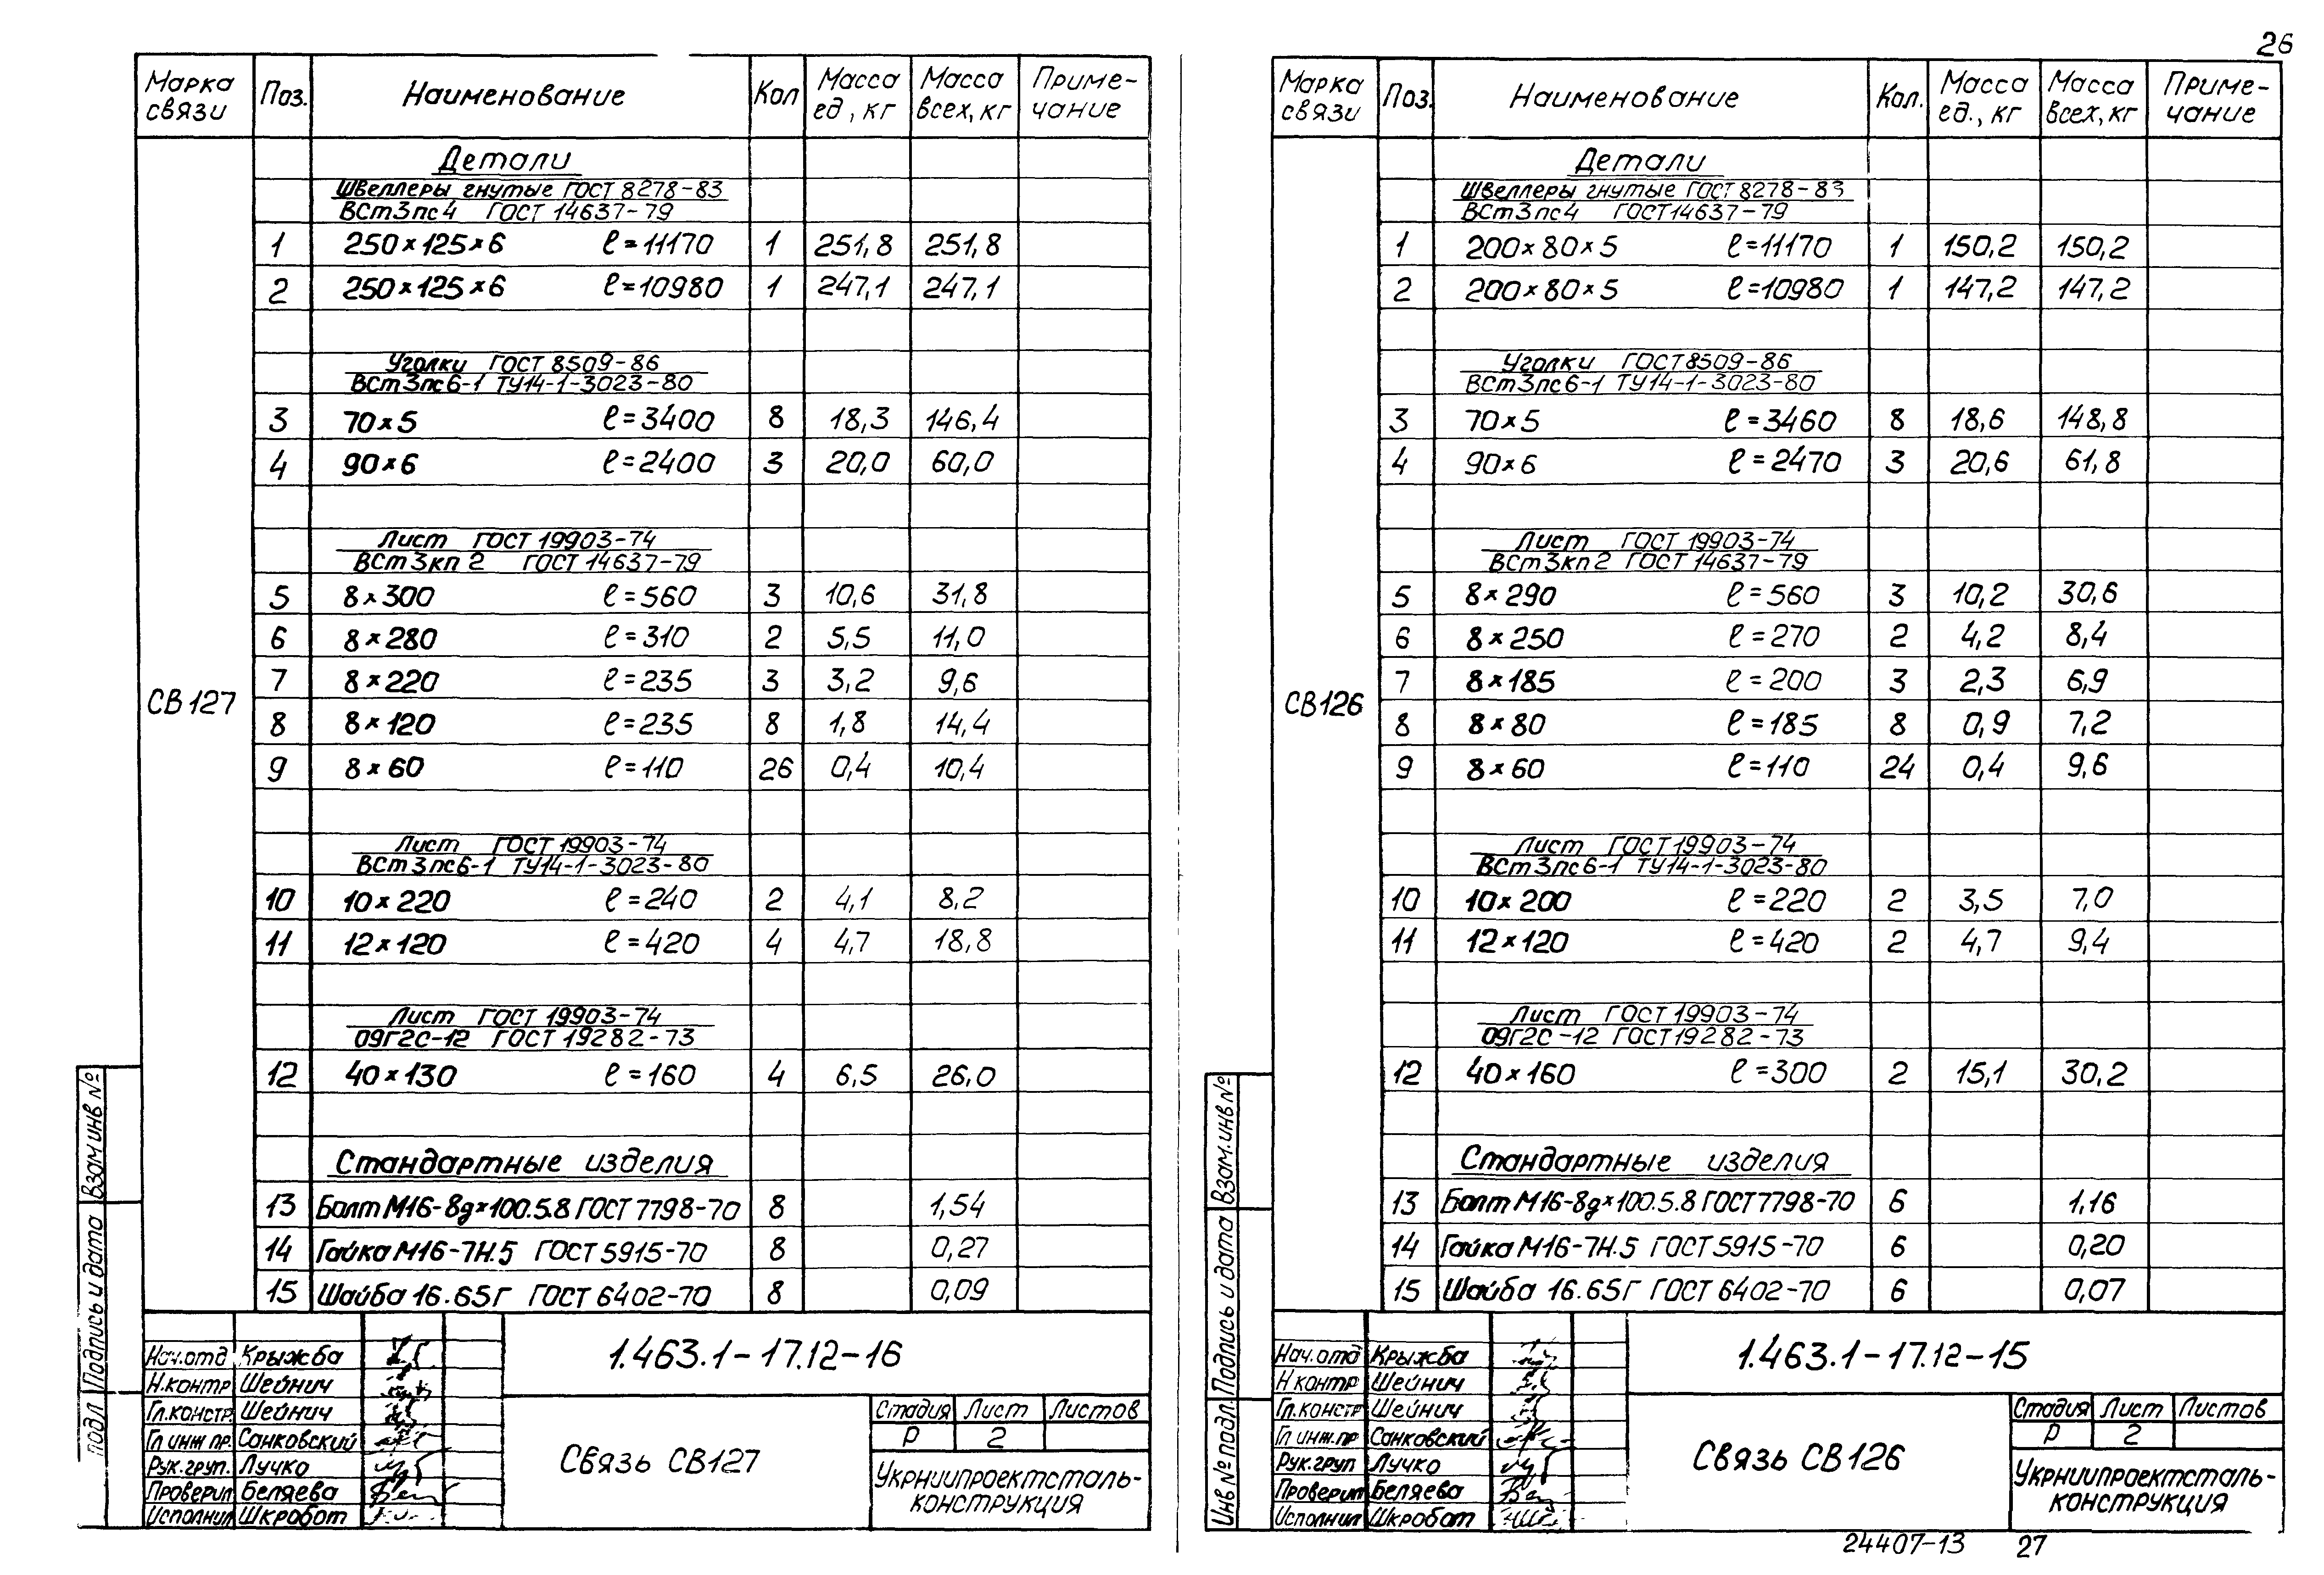 26
Марка связи Поз. Наименование Кол Масса ед, кг Масса всех, кг Приме-чание
СВ127
Детали
Швеллеры гнутые ГОСТ 8278-83
ВСт3пс4 ГОСТ 14637-79
1 250×125×6 ℓ=11170 1 251,8 251,8
2 250×125×6 ℓ=10980 1 247,1 247,1
Уголки ГОСТ 8509-86
ВСт3пс6-1 ТУ14-1-3023-80
3 70×5 ℓ=3400 8 18,3 146,4
4 90×6 ℓ=2400 3 20,0 60,0
Лист ГОСТ 19903-74
ВСт3кп2 ГОСТ 14637-79
5 8×300 ℓ=560 3 10,6 31,8
6 8×280 ℓ=310 2 5,5 11,0
7 8×220 ℓ=235 3 3,2 9,6
8 8×120 ℓ=235 8 1,8 14,4
9 8×60 ℓ=110 26 0,4 10,4
Лист ГОСТ 19903-74
ВСт3пс6-1 ТУ14-1-3023-80
10 10×220 ℓ=240 2 4,1 8,2
11 12×120 ℓ=420 4 4,7 18,8
Лист ГОСТ 19903-74
09Г2С-12 ГОСТ 19282-73
12 40×130 ℓ=160 4 6,5 26,0
Стандартные изделия
13 Болт М16-8g×100.5.8 ГОСТ 7798-70 8 1,54
14 Гайка М16-7Н.5 ГОСТ 5915-70 8 0,27
15 Шайба 16.65Г ГОСТ 6402-70 8 0,09
Взам.инв №
Подпись и дата
подл
Нач.отд Крыжба
Н.контр Шейнич
Гл.констр. Шейнич
Гл инж пр. Санковский
Рук.груп. Лучко
Проверил Беляева
Исполнил Шкробот
1.463.1-17.12-16
Связь СВ127
Стадия Лист Листов
Р 2
Укрниипроектсталь-
конструкция
Марка связи Поз. Наименование Кол. Масса ед., кг Масса всех, кг Приме-чание
СВ126
Детали
Швеллеры гнутые ГОСТ 8278-83
ВСт3пс4 ГОСТ 14637-79
1 200×80×5 ℓ=11170 1 150,2 150,2
2 200×80×5 ℓ=10980 1 147,2 147,2
Уголки ГОСТ 8509-86
ВСт3пс6-1 ТУ14-1-3023-80
3 70×5 ℓ=3460 8 18,6 148,8
4 90×6 ℓ=2470 3 20,6 61,8
Лист ГОСТ 19903-74
ВСт3кп2 ГОСТ 14637-79
5 8×290 ℓ=560 3 10,2 30,6
6 8×250 ℓ=270 2 4,2 8,4
7 8×185 ℓ=200 3 2,3 6,9
8 8×80 ℓ=185 8 0,9 7,2
9 8×60 ℓ=110 24 0,4 9,6
Лист ГОСТ 19903-74
ВСт3пс6-1 ТУ14-1-3023-80
10 10×200 ℓ=220 2 3,5 7,0
11 12×120 ℓ=420 2 4,7 9,4
Лист ГОСТ 19903-74
09Г2С-12 ГОСТ 19282-73
12 40×160 ℓ=300 2 15,1 30,2
Стандартные изделия
13 Болт М16-8g×100.5.8 ГОСТ 7798-70 6 1,16
14 Гайка М16-7Н.5 ГОСТ 5915-70 6 0,20
15 Шайба 16.65Г ГОСТ 6402-70 6 0,07
Взам.инв №
Подпись и дата
Инв № подл.
Нач.отд Крыжба
Н контр Шейнич
Гл.констр Шейнич
Гл инж.пр Санковский
Рук.груп Лучко
Проверил Беляева
Исполнил Шкробот
1.463.1-17.12-15
Связь СВ126
Стадия Лист Листов
Р 2
Укрниипроектсталь-
конструкция
24407-13 27